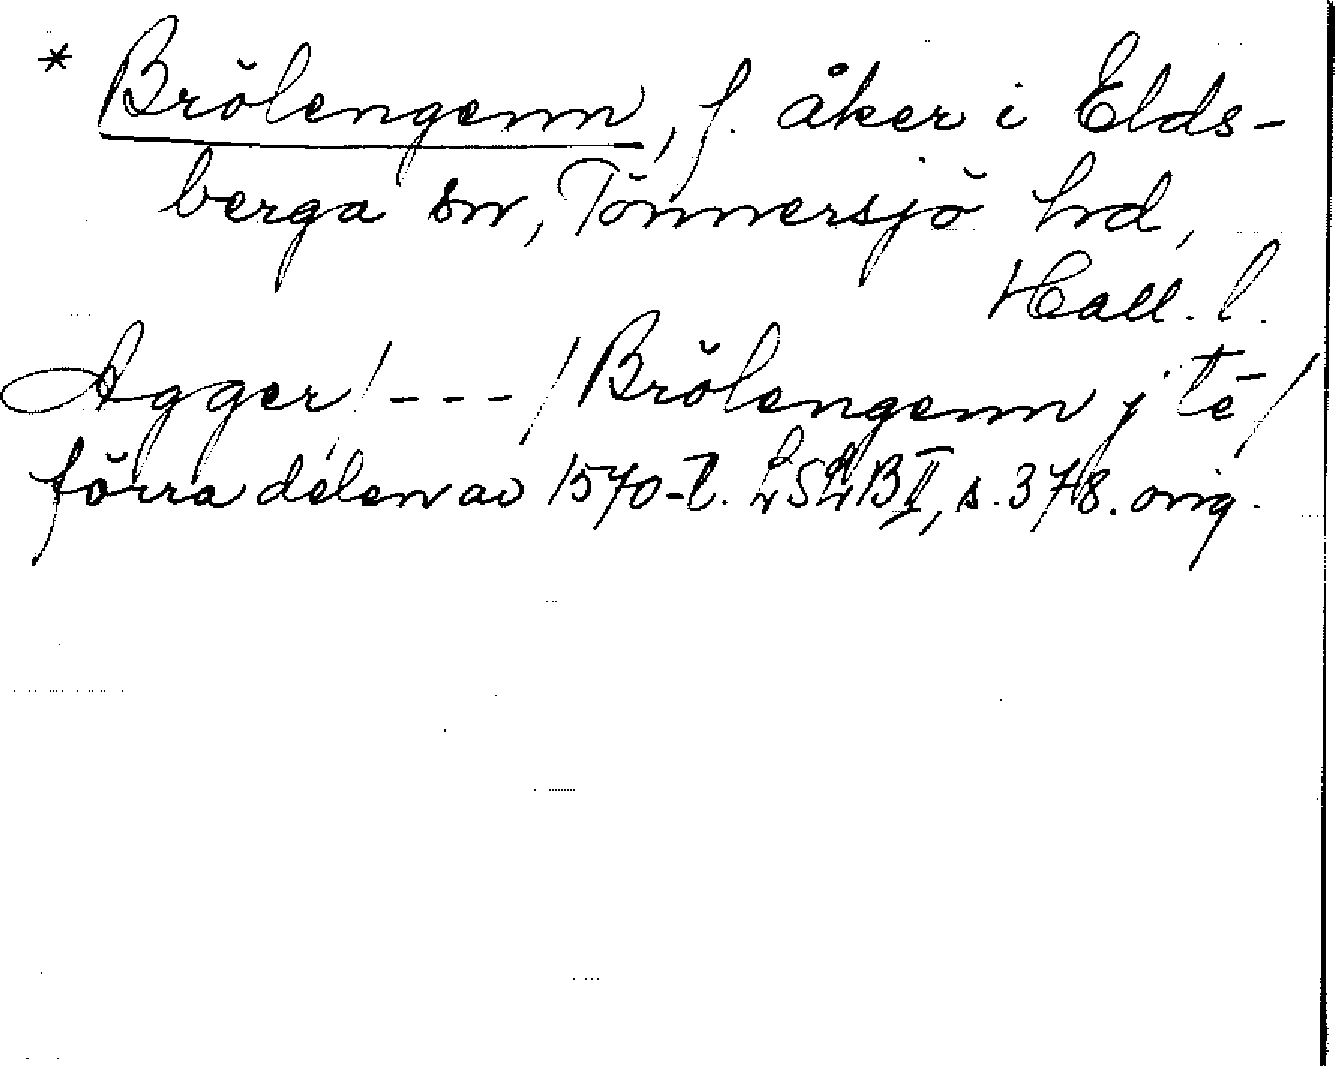 * Brölengenn, f. åker i Elds-
berga sn, Tönnersjö hd,
Hall. l.
Agger /---/ Brölengenn j tē /
förra delen av 1570-t. LSLB II, s. 378. orig.